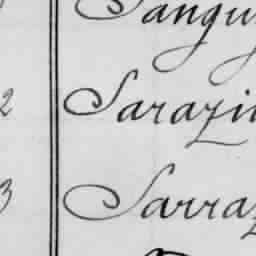 Sangu
2 Sarazi
3 Sarraz